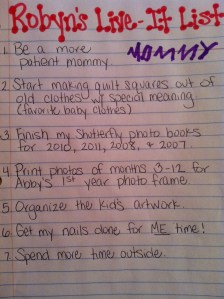 Robyn's Live-It List
1. Be a more
patient mommy.
MOMMY
2. Start making quilt squares out of
old clothes w/ special meaning.
(favorite baby clothes)
3. Finish my Shutterfly photo books
for 2010, 2011, 2008, & 2007.
4. Print photos of months 3-12 for
Abby's 1st year photo frame.
5. Organize the kid's artwork.
6. Get my nails done for ME time!
7. Spend more time outside.